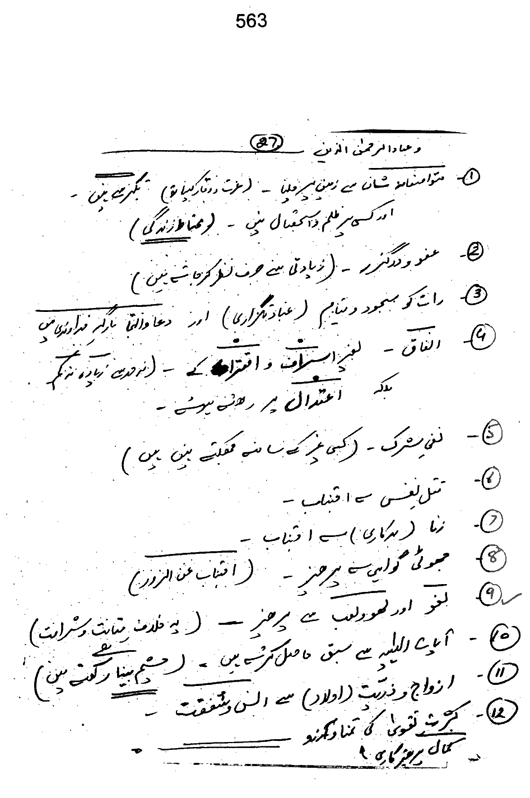 563
27
وعبادالرحمٰن الذین
۱- متواضعانہ شان سے زمین پر چلنا - (عزت و وقار کیساتھ) تکبر سے نہیں -
اور کسی پر ظلم و استحصال نہیں - (محتاط زندگی)
۲- عفو و درگزر - (زیادتی سے صرف نظر کر جاتے ہیں)
۳- رات کو سجود و قیام (عبادتگزاری) اور دعا والتجا بارگہِ خداوندی میں
۴- انفاق - بغیر اسراف و اقتار کے - (نہ حد سے زیادہ نہ کم
بلکہ اعتدال پر رہتے ہوئے -
۵- نفی شرک - (کسی غیر کے سامنے جھکتے نہیں ہیں)
۶- قتل نفس سے اجتناب -
۷- زنا (بدکاری) سے اجتناب -
۸- جھوٹی گواہی سے پرہیز - (اجتناب عن الزور)
۹- لغو اور لھو ولعب سے پرہیز - (یہ خلاف متانت و شرافت)
۱۰- آیات الٰہیہ سے سبق حاصل کرتے ہیں - (چشم بینا رکھتے ہیں)
۱۱- ازواج و ذریّت (اولاد) سے انس و شفقت -
۱۲- کثرت تقویٰ کی تمنا و آرزو
کمال پرہیزگاری